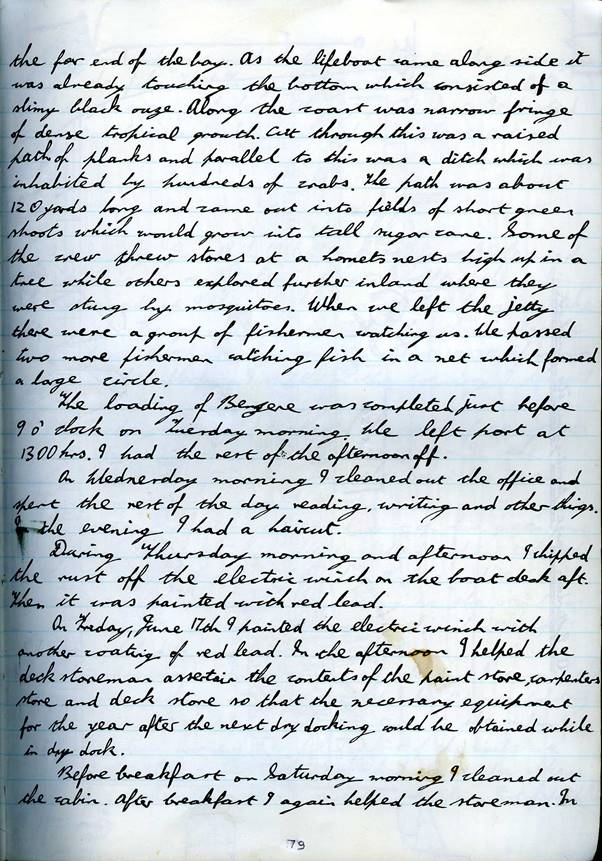 the far end of the bay. As the lifeboat came along side it
was already touching the bottom which consisted of a
slimy black ouze. Along the coast was narrow fringe
of dense tropical growth. Cut through this was a raised
path of planks and parallel to this was a ditch which was
inhabited by hundreds of crabs. The path was about
120 yards long and came out into fields of short green
shoots which would grow into tall sugar cane. Some of
the crew threw stones at a hornets nests high up in a
tree while others explored further inland where they
were stung by mosquitoes. When we left the jetty
there were a group of fishermen watching us. We passed
two more fishermen catching fish in a net which formed
a large circle.
The loading of Benzene was completed just before
9 o' clock on Tuesday morning. We left port at
1300 hrs. I had the rest of the afternoon off.
On Wednesday morning I cleaned out the office and
spent the rest of the day reading, writing and other things.
In the evening I had a haircut.
During Thursday morning and afternoon I chipped
the rust off the electric winch on the boat deck aft.
Then it was painted with red lead.
On Friday, June 17th I painted the electric winch with
another coating of red lead. In the afternoon I helped the
deck storeman assertain the contents of the paint store, carpenters
store and deck store so that the necessary equipment
for the year after the next dry docking could be obtained while
in dry dock.
Before breakfast on Saturday morning I cleaned out
the cabin. After breakfast I again helped the storeman. In
79